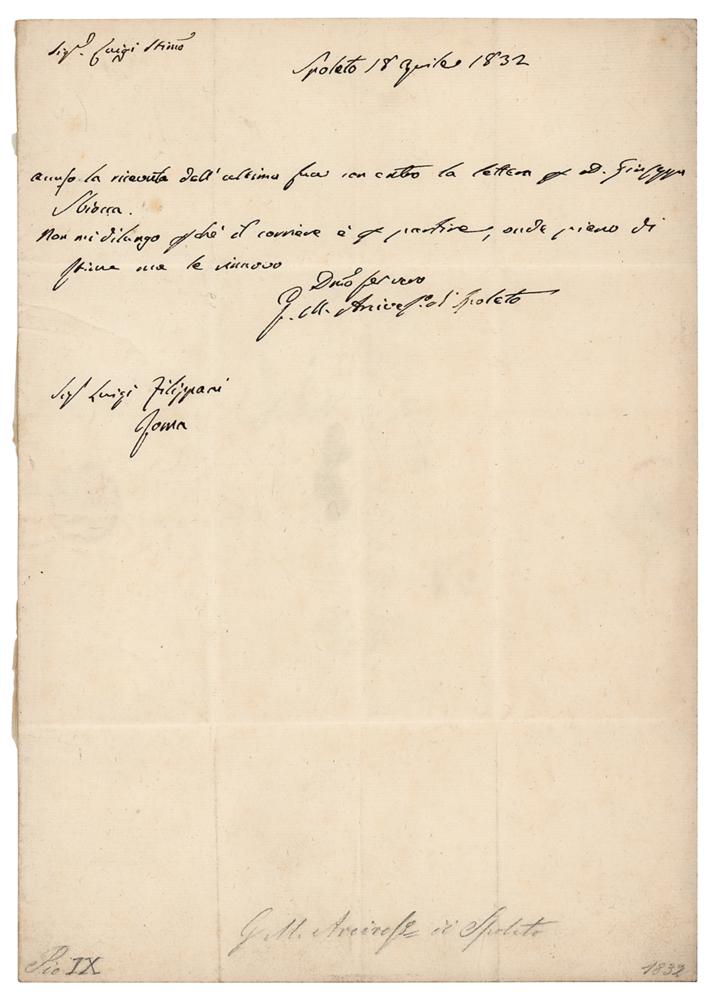 Sig.r Luigi Stimo
Spoleto 18 Aprile 1832
accuso la ricevuta dell'ultima sua con entro la lettera p D. Giuseppe
Sbiocca.
Non mi dilungo pchè il corriere è p partire, onde pieno di
stima me le rinnovo
Dmo ser vero
G. M. Arcivesco di Spoleto
Sigr Luigi Filippani
Roma
G. M. Arcivesco di Spoleto
Pio IX
1832